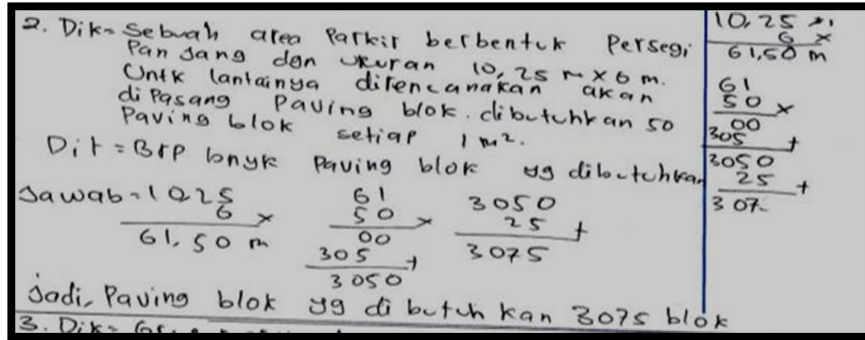 2. Dik = Sebuah area Parkir berbentuk Persegi
Panjang dgn Ukuran 10,25 m x 6 m.
Untk lantainya direncanakan akan
diPasang Paving blok. dibutuhkan 50
Paving blok setiap 1 m².
Dit = Brp bnyk Paving blok yg dibutuhkan
Jawab = 1025
6 x
61,50 m
61
50 x
00
305 +
3050
3050
25 +
3075
Jadi, Paving blok yg di butuh kan 3075 blok
3. Dik =
10,25
6 x
61,50 m
61
50 x
00
305 +
3050
25 +
307